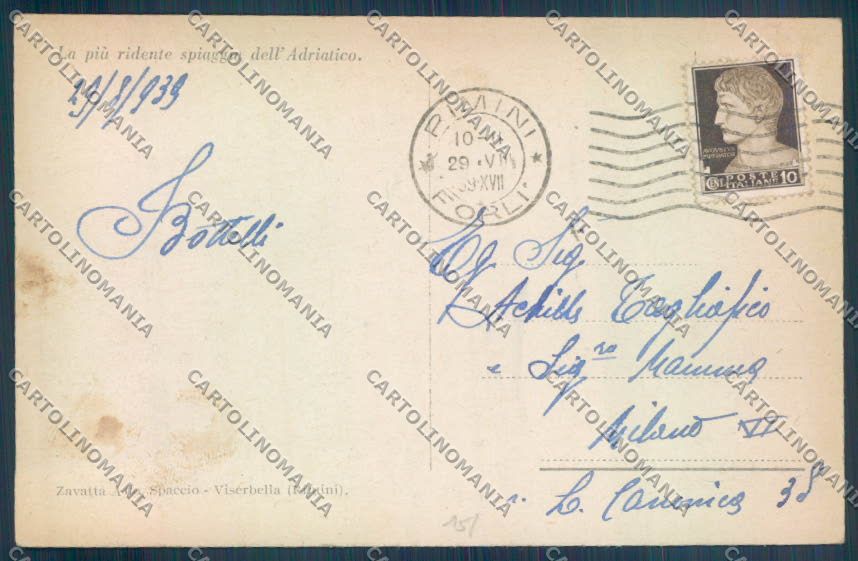 La più ridente spiaggia dell'Adriatico.
29/7/939
RIMINI
10-
29 · VII
39·XVII
FORLI'
AVGVSTVS
IMPERATOR
POSTE
CENT. ITALIANE 10
Bottelli
Eg Sig.
Achille Tagliafico
e Sigra Mamma
Milano VI
38
Zavatta Spaccio - Viserbella (Rimini).
15/
CARTOLINOMANIA